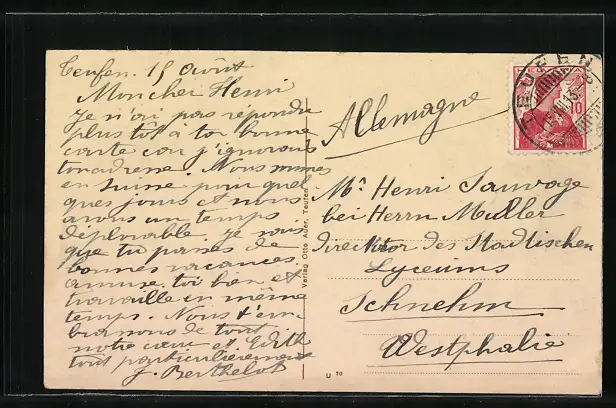 Teufen. 15 Août
Mon cher Henri
Je n'ai pas répondu
plus tôt à ta bonne
carte car j'ignorais
ton adresse. Nous sommes
en Suisse pour quel
ques jours et nous
avons un temps
déplorable. Je vois
que tu passes de
bonnes vacances.
amuse toi bien et
travaille en même
temps. Nous t'em
brassons de tout
notre cœur et Edith
tout particulièrement
J. Berthelot
Verlag Otto Ader, Teufen
U 10
TEUFEN
10
Allemagne
Mr Henri Sauvage
bei Herrn Muller
direcktor des Stadtischen
Lyceums
Schnehm
Westphalie